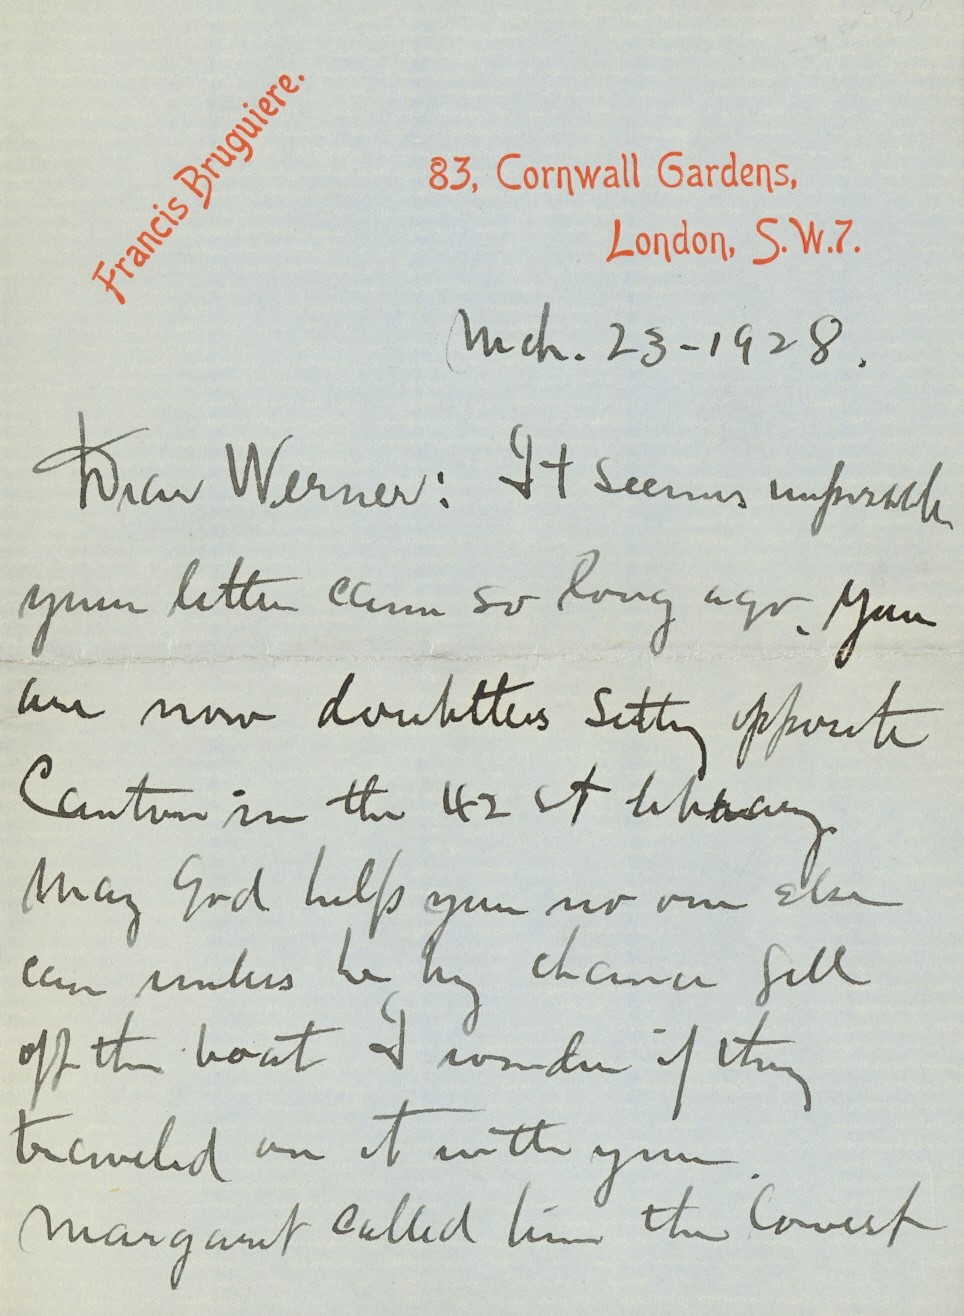 Francis Bruguiere.
83, Cornwall Gardens,
London, S.W.7.
Mch. 23-1928.
Dear Werner: It seems impossible
your letter came so long ago. You
are now doubtless sitting opposite
Canton in the 42 St library.
May God help you no one else
can unless he by chance fell
off the boat I wonder if they
traveled on it with you.
Margaret called him the lowest